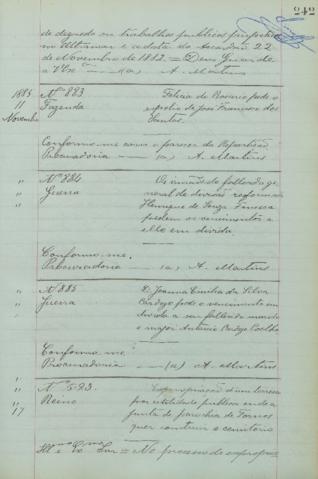 242
de degredo ou trabalhos publicos
no Ultramar e a data do Accordão 22
de Novembro de 1882. = Deus Guarde
a V Exª — (a) A. Martins
1885 Nº 883 Felicia do Rosario pede o
11 Fazenda espolio de José Francisco dos
Novembro Santos.
Conformo-me com o parecer da Repartição
Procuradoria — (a) A. Martins
" Nº 884 Os irmãos do fallecido ge
" Guerra neral de divisão
Henrique de Souza Fonseca
pedem os vencimentos a
elle em divida
Conformo-me.
Procuradoria — (a) A. Martins
" Nº 885 D. Joanna Emilia da Silva
" Guerra Cardozo pede o vencimento em
divida a seu fallecido marido
o major Antonio Cardozo Coelho
Conformo-me
Procuradoria — (a) A. Martins
" Nº 523 Expropriação d'um terreno
" Reino por utilidade publica onde a
17 junta de parochia de Fornos
quer construir o cemiterio
Illmo e Exmo Snr = No processo de expropria